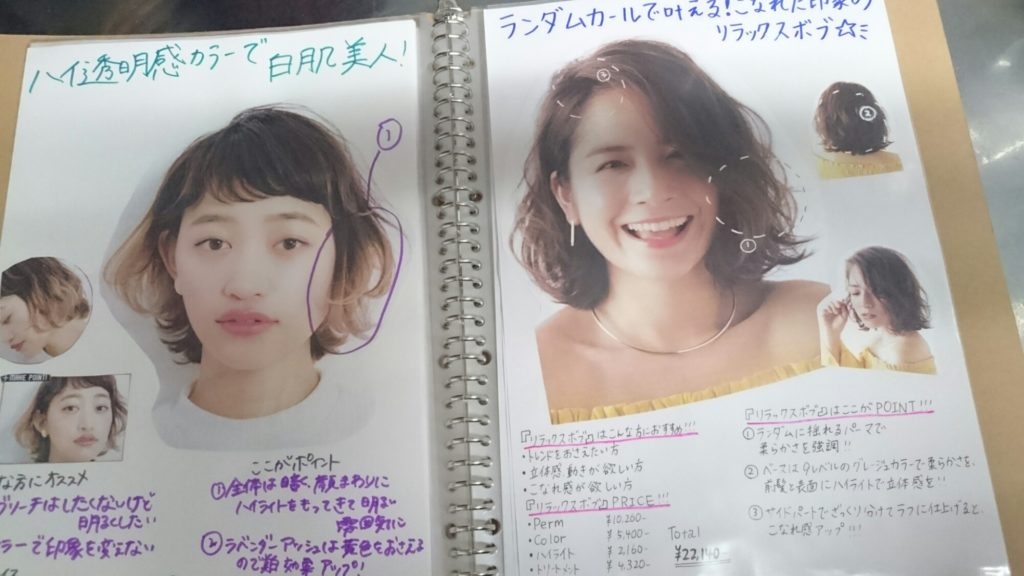 ハイ透明感カラーで
白肌美人!
①
な方にオススメ
ブリーチはしたくないけど
明るくしたい
ラーで印象を変えない
ここがポイント
①全体は暗く、顔まわりに
ハイライトをもってきて明るい
雰囲気に
②ラベンダーアッシュは黄色をおさえる
ので
効果アップ!
ランダムカールで叶える!こなれた印象の
リラックスボブ☆ミ
③
①
②
『リラックスボブ』はこんな方におすすめ!!!
・トレンドをおさえたい方
・立体感 動きが欲しい方
・こなれ感が欲しい方
『リラックスボブ』PRICE!!!
・Perm ¥10,260-
・Color ¥5,400-
・ハイライト ¥2,160-
・トリートメント ¥4,320-
Total
¥22,140-
『リラックスボブ』はここがPOINT!!!
①ランダムに揺れるパーマで
柔らかさを強調!!
②ベースは9レベルのグレージュカラーで柔らかさを、
前髪と表面にハイライトで立体感を!!
③サイドパートでざっくり分けてラフに仕上げると、
こなれ感アップ!!!